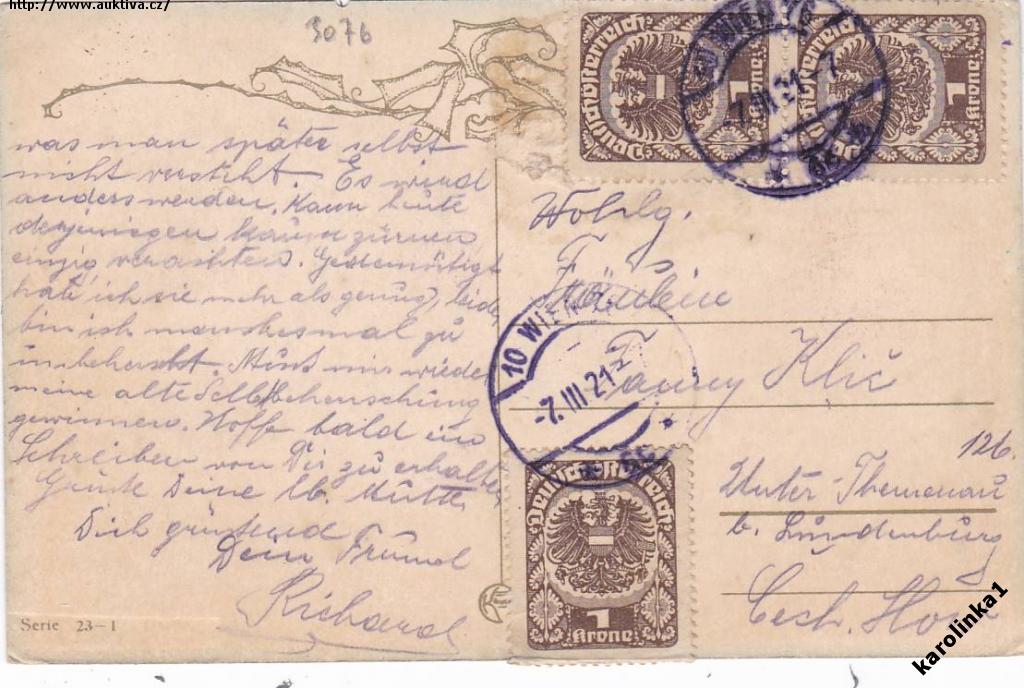 http://www.auktiva.cz/
3076
was man später selbst
nicht versteht. Es wird
anders werden. Kann Leute
derjenigen kaum zürnen
einzig verachten. Gedemütigt
hate ich sie mehr als genug, leider
bin ich manchesmal zu
unbeherscht. Muss mir wieder
meine alte Selbstbeherschung
gewinnen. Hoffe bald ein
Schreiben von Dir zu erhalten
Grüße Deine lb. Mutter
Dich grüssend
Dein Freund
Richard
Serie 23-1
Deutschösterreich
1 Krone
Deutschösterreich
1 Krone
10 WIEN
-7.III.21-7
Wohlg.
Fräulein
Fanny Klič
126.
Unter-Themenau
b. Lundenburg
Čech. Slov.
10 WIEN
-7.III.21
Deutschösterreich
1
Krone
karolinka1